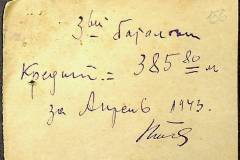 156
3ти баталион
Кредит. = 385 80 м
за Априль 1943.